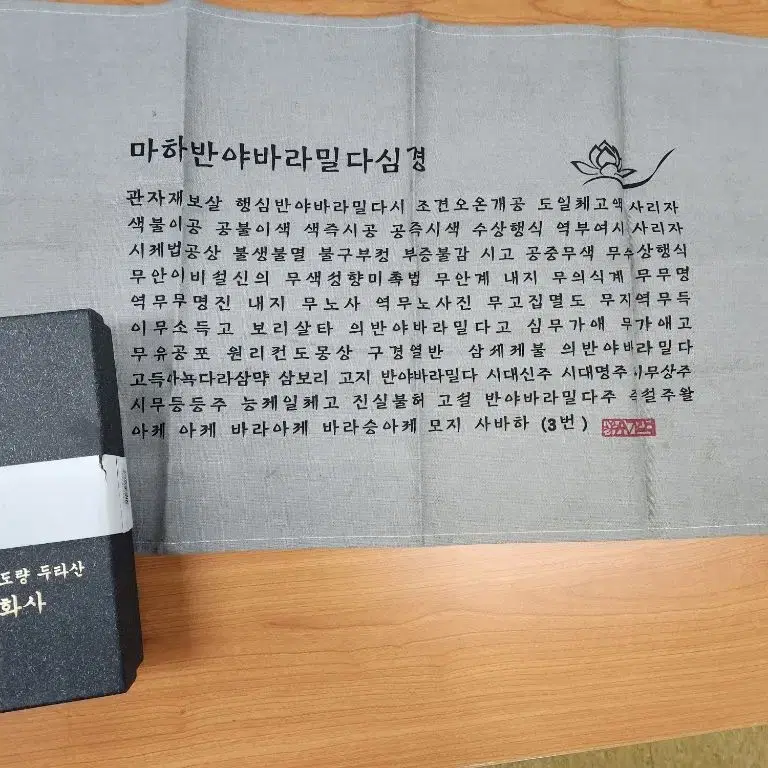 마하반야바라밀다심경
관자재보살 행심반야바라밀다시 조견오온개공 도일체고액 사리자
색불이공 공불이색 색즉시공 공즉시색 수상행식 역부여시 사리자
시케법공상 불생불멸 불구부정 부증불감 시고 공중무색 무수상행식
무안이비설신의 무색성향미촉법 무안계 내지 무의식계 무무명
역무무명진 내지 무노사 역무노사진 무고집멸도 무지역무득
이무소득고 보리살타 의반야바라밀다고 심무가애 무가애고
무유공포 원리컨도몽상 구경열반 삼세케불 의반야바라밀다
고득아뇩다라삼먁 삼보리 고지 반야바라밀다 시대신주 시대명주 시무상주
시무등등주 능케일체고 진실불허 고설 반야바라밀다주 즉설주왈
아케 아케 바라아케 바라승아케 모지 사바하 (3번)
도량 두타산
화사